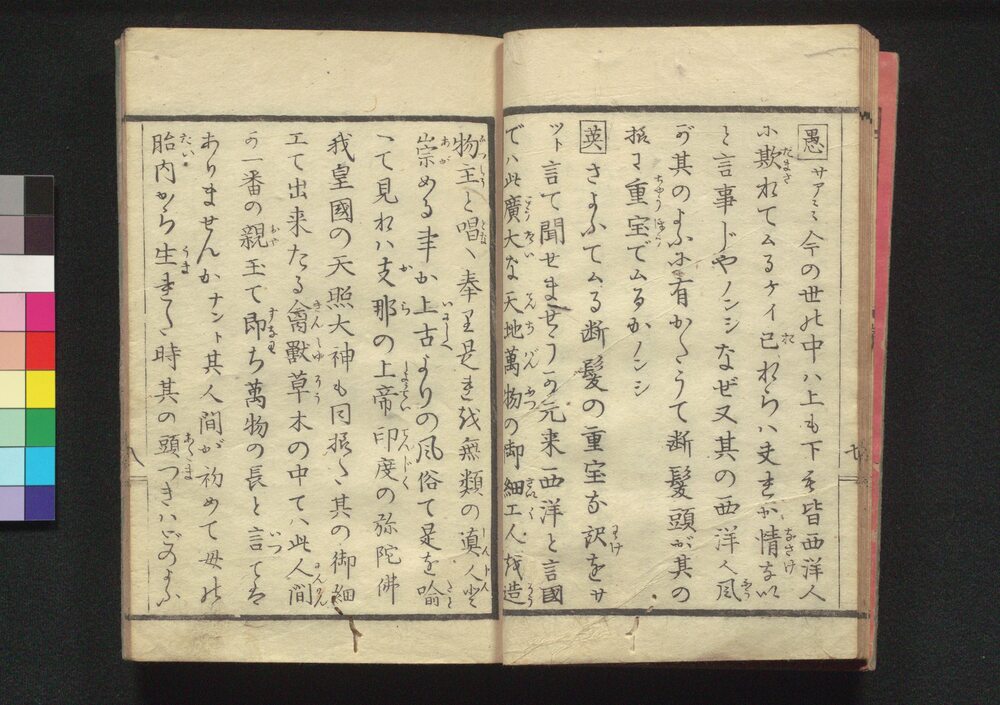 愚 サアミ今の世の中ハ上も下も皆西洋人
に欺れてムるケイ已れらハ夫まが情ない
と言事じやノンシなぜ又其の西洋人風
が其のよふに有かたうて断髪頭が其の
様に重宝でムるかノンシ
英 さよふてムる断髪の重宝な訳をサ
ツト言て聞せませうか元来西洋と言國
でハ此廣大な天地萬物の御細工人を造
物主と唱へ奉り是を無類の真人と
崇める事か上古よりの風俗て是を喩
へて見れハ支那の上帝印度の弥陀佛
我皇國の天照大神も同様て其の御細
工て出来たる禽獣草木の中てハ此人間
か一番の親玉て即ち萬物の長と言てハ
ありませんかナント其人間が初めて母の
胎内から生ました時其の頭つきハどのよふ
七
八